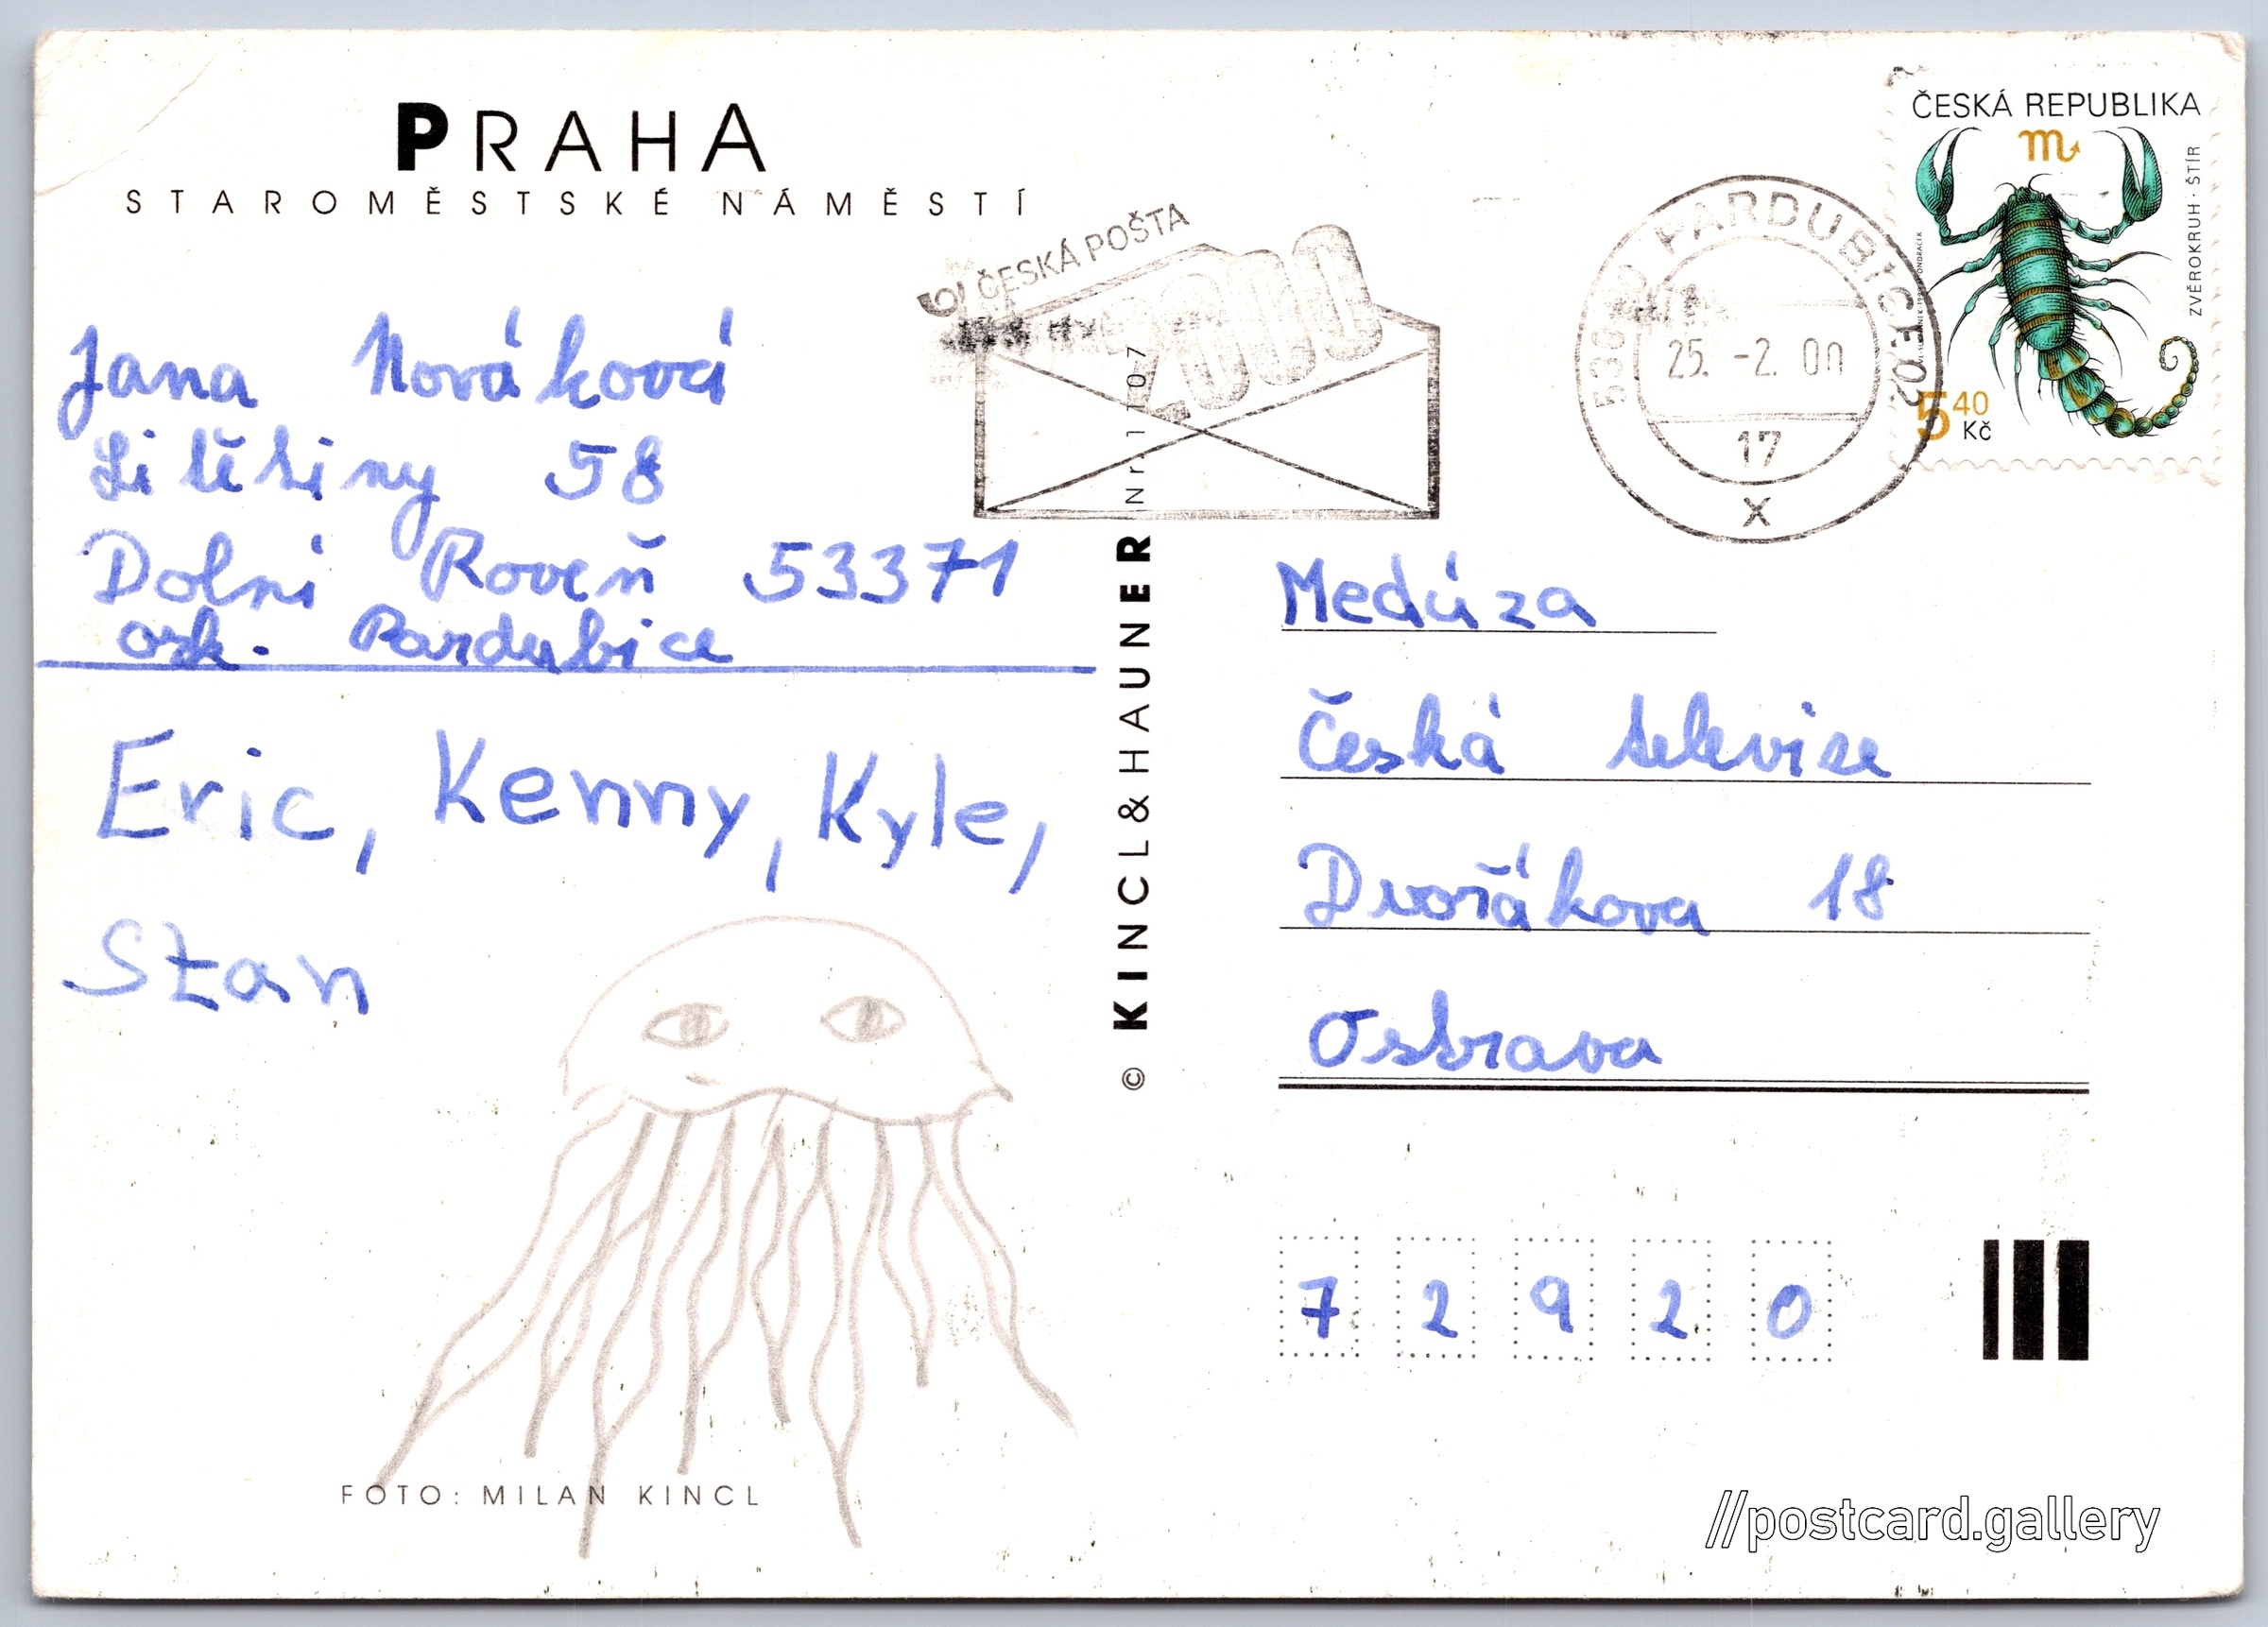 PRAHA
STAROMĚSTSKÉ NÁMĚSTÍ
Jana Nováková
Litětiny 58
Dolní Roveň 53371
osk. Pardubice
Eric, Kenny, Kyle,
Stan
FOTO: MILAN KINCL
© KINCL & HAUNER
Nr. 1107
ČESKÁ POŠTA
2000
PARDUBICE 02
25. -2. 00
17
X
ČESKÁ REPUBLIKA
ZVĚROKRUH · ŠTÍR
5 40 Kč
Medúza
Česká televise
Dvořákova 18
Ostrava
7 2 9 2 0
//postcard.gallery